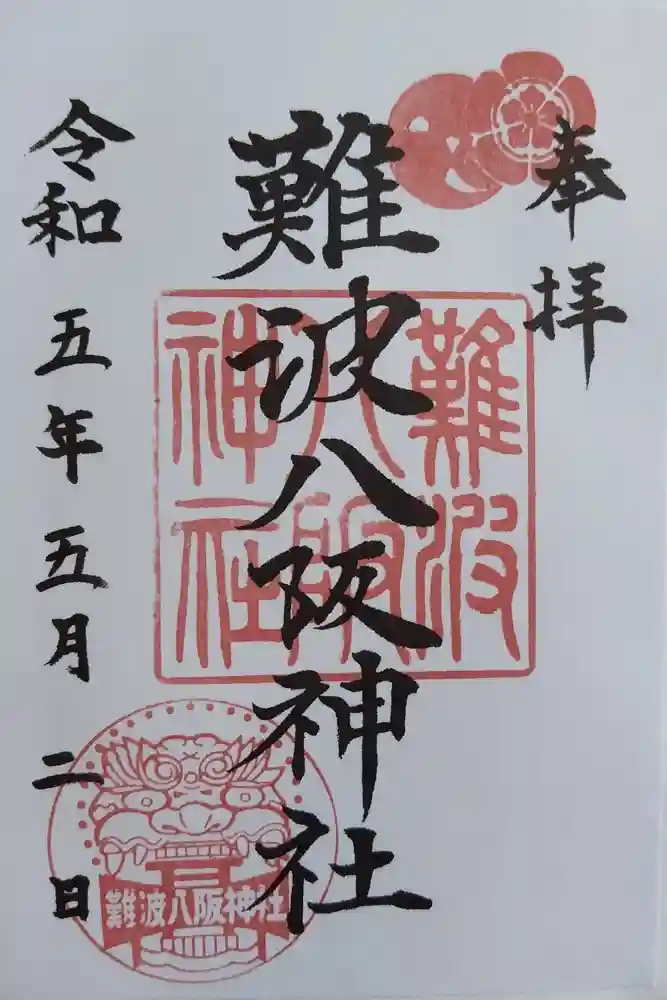 奉拝
難波八阪神社
難波八阪神社
令和五年五月二日
難波八阪神社